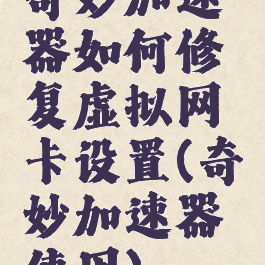 奇妙加速
器如何修
复虚拟网
卡设置(奇
妙加速器
使用)